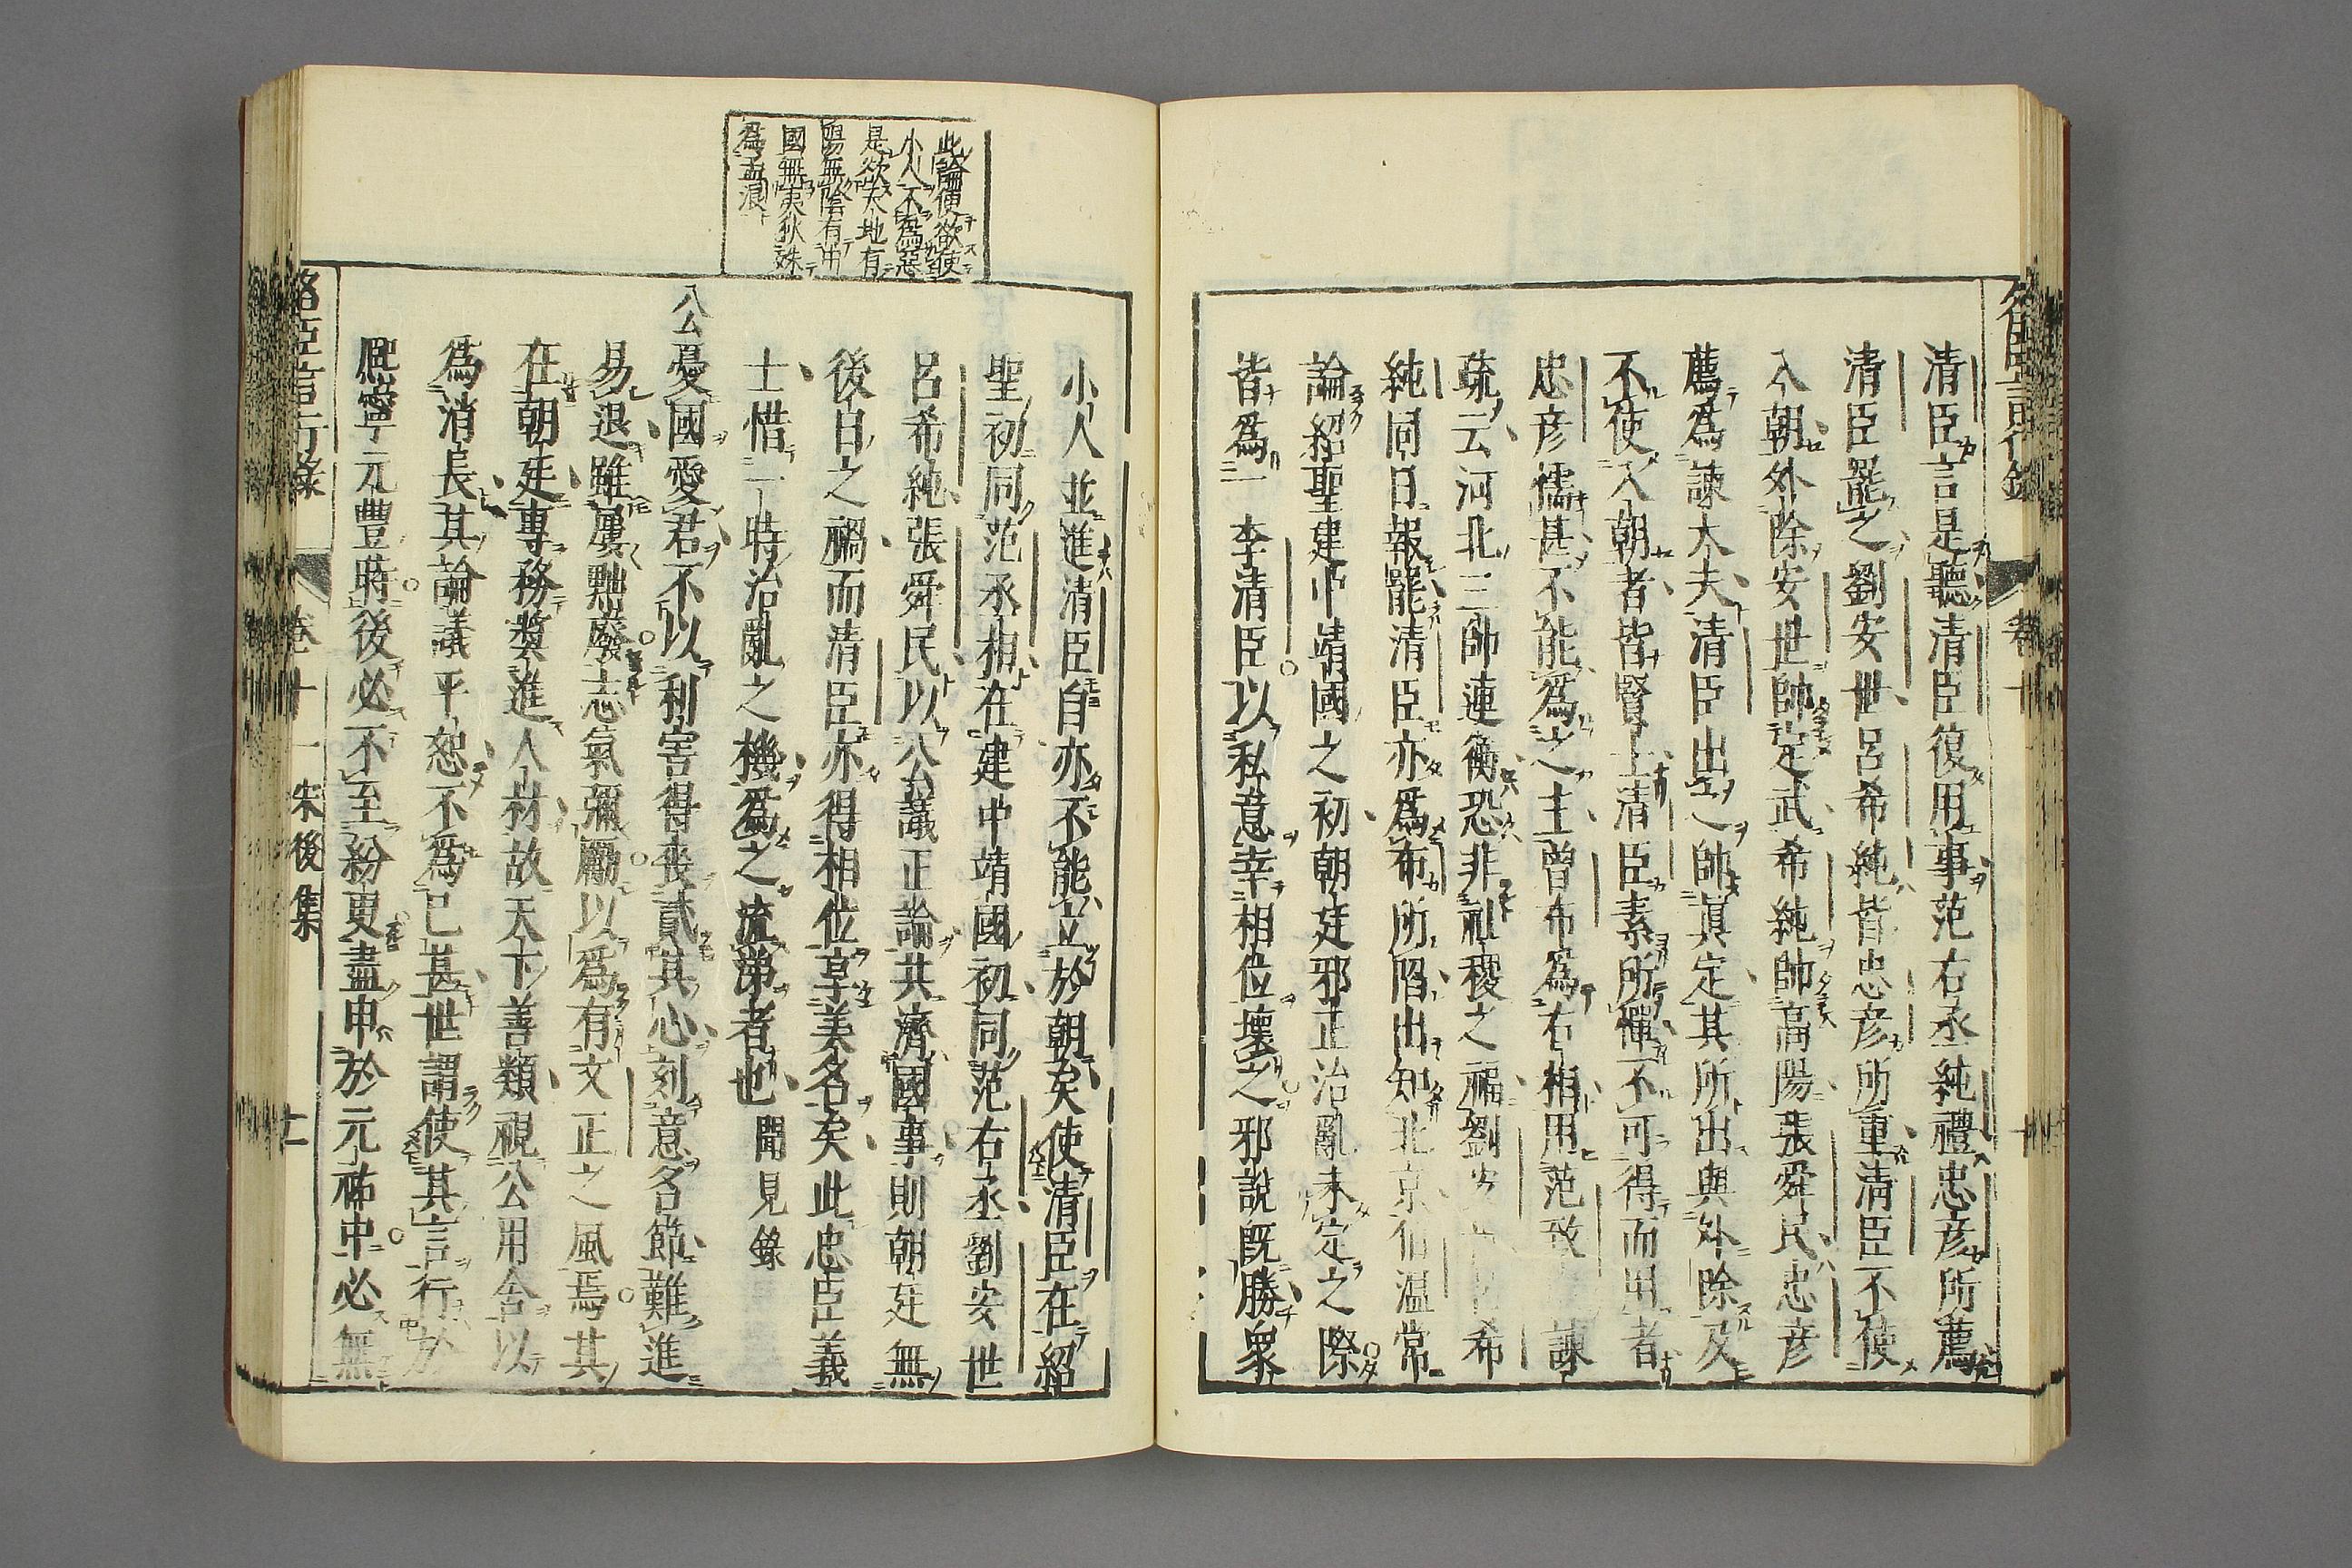 清臣言是聽清臣復用事范右丞純禮忠彦所薦
清臣罷之劉安世呂希純皆忠彦所重清臣不使
入朝外除安世帥定武希純帥高陽張舜民忠彦
薦爲諫大夫清臣出之帥眞定其所出與外除及
不使入朝者皆賢士清臣素所憚不可得而用者
忠彦懦甚不能爲之主曾布爲右相用范致 諫
疏云河北三帥連衡恐非社稷之福劉安 希
純同日報罷清臣亦爲布所陷出知北京伯溫常
論紹聖建中靖國之初朝廷邪正治亂未定之際
皆爲一李清臣以私意幸相位壞之邪説既勝衆
小人並進清臣自亦不能立於朝矣使清臣在紹
聖初同范丞相在建中靖國初同范右丞劉安世
呂希純張舜民以公議正論共濟國事則朝廷無
後日之禍而清臣亦得相位享美名矣此忠臣義
士惜一時治亂之機爲之流涕者也 聞見錄
公憂國愛君不以利害得喪貳其心刻意名節難進
易退雖屢黜廢志氣彌勵以爲有文正之風焉其
在朝廷專務奬進人材故天下善類視公用舍以
爲消長其論議平恕不爲已甚世謂使其言行於
熈寧元豐時後必不至紛更盡申於元祐中必無
此論便欲使
小人不爲惡
是欲天地有
陽無陰有中
國無夷狄殊
爲孟浪
名臣言行錄 卷十一 宋後集 十一